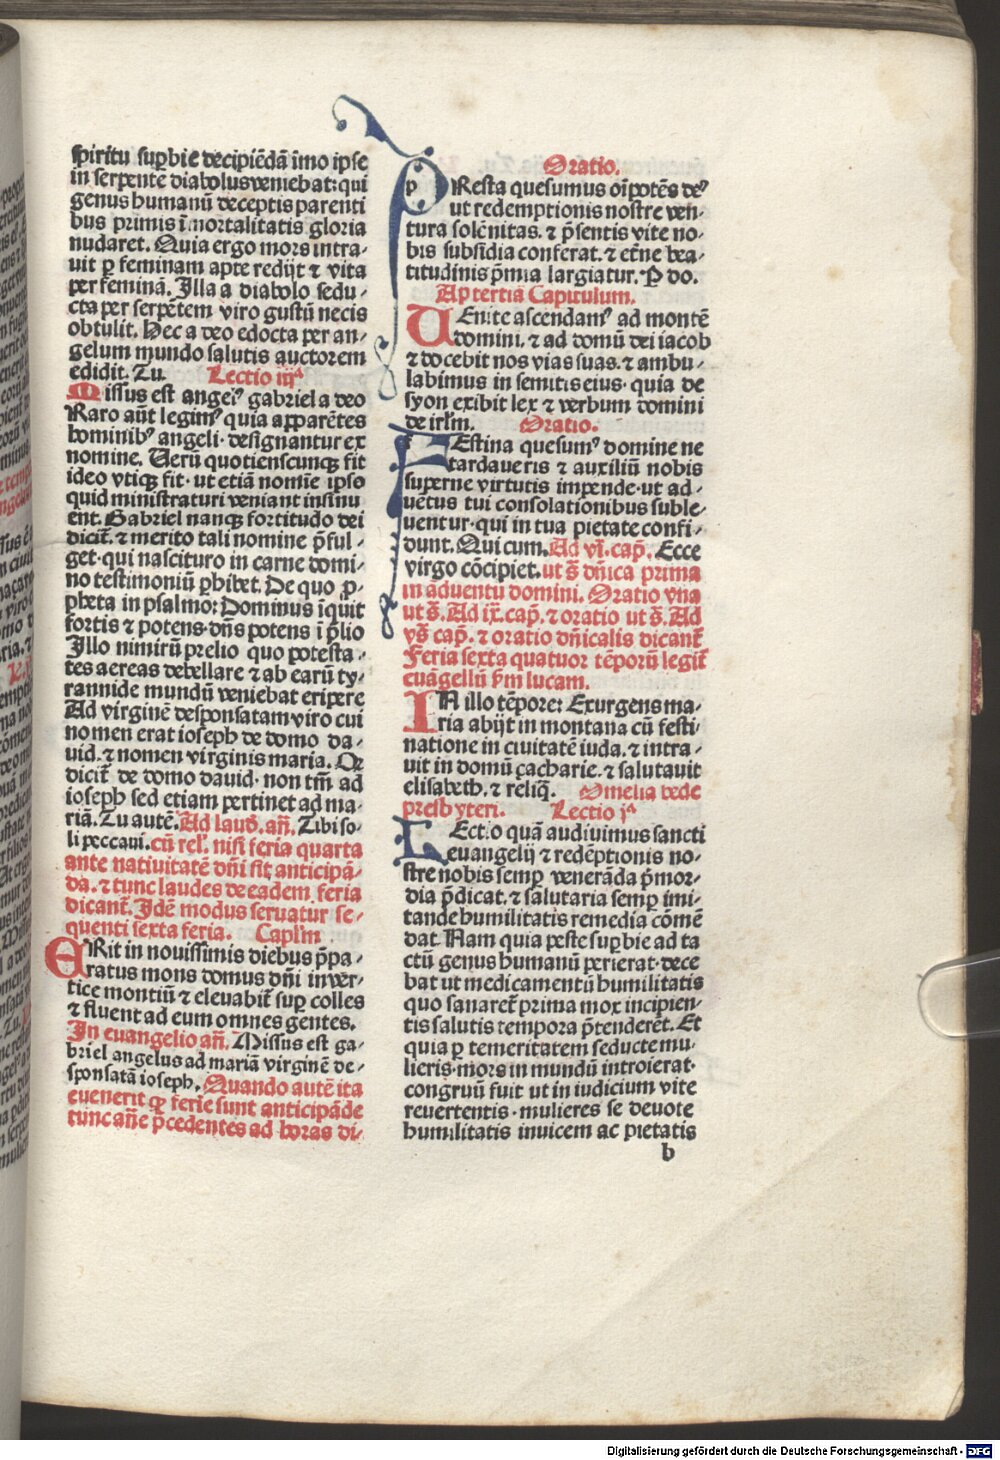 spiritu supbie decipiēdā īmo ipse
in serpente diabolus veniebat: qui
genus humanū deceptis parenti
bus primis ī mortalitatis gloria
nudaret. Quia ergo mors intra-
uit p feminam apte redijt ⁊ vita
per feminā. Illa a diabolo sedu-
cta per serpētem viro gustū necis
obtulit. Hec a deo edocta per an-
gelum mundo salutis auctorem
edidit. Tu. Lectio iijª
Missus est angelꝰ gabriel a deo
Raro aūt legimꝰ quia apparētes
hominibꝰ angeli· designantur ex
nomine. Uerū quotienscunqꝫ fit
ideo vtiqꝫ fit· ut etiā nomīe ipso
quid ministraturi veniant insinu
ent. Gabriel nanqꝫ fortitudo dei
dicit̄. ⁊ merito tali nomine p̄ful-
get· qui nascituro in carne domi-
no testimoniū phibet. De quo p-
pheta in psalmo: Dominus īquit
fortis ⁊ potens· dn̄s potens ī p̄lio
Illo nimirū prelio quo potesta-
tes aereas debellare ⁊ ab earū ty-
rannide mundū veniebat eripere
Ad virginē desponsatam viro cui
nomen erat ioseph de domo da-
uid. ⁊ nomen virginis maria. Qd
dicit̄ de domo dauid· non tm̄ ad
ioseph sed etiam pertinet ad ma-
riā. Tu autē. Ad laud̄. an̄. Tibi so-
li peccaui. cū rel̄. nisi feria quarta
ante natiuitatē dn̄i sit anticipā-
da. ⁊ tunc laudes de eadem feria
dicant̄. Idē modus seruatur se-
quenti sexta feria. Capl̄m
ERit in nouissimis diebus p̄pa-
ratus mons domus dn̄i in ver-
tice montiū ⁊ eleuabit̄ sup colles
⁊ fluent ad eum omnes gentes.
In euangelio an̄. Missus est ga-
briel angelus ad mariā virginē de-
sponsatā ioseph. Quando autē ita
euenerit qp ferie sunt anticipāde
tunc an̄e p̄cedentes ad horas di-
Oratio.
p PResta quesumus oīpotēs deꝰ
ut redemptionis nostre ven-
tura solēnitas. ⁊ p̄sentis vite no-
bis subsidia conferat. ⁊ et̄ne bea-
titudinis p̄mia largiatur. P do.
Ap tertiā Capitulum.
UEnite ascendamꝰ ad montē
domini. ⁊ ad domū dei iacob
⁊ docebit nos vias suas. ⁊ ambu-
labimus in semitis eius· quia de
syon exibit lex ⁊ verbum domini
de irl̄m. Oratio.
f FEstina quesumꝰ domine ne
tardaueris ⁊ auxiliū nobis
superne virtutis impende· ut ad-
uētus tui consolationibus suble-
uentur· qui in tua pietate confi-
dunt. Qui cum. Ad vi. cap̄. Ecce
virgo cōcipiet. ut s̄ dn̄ica prima
in aduentu domini. Oratio vna
ut s̄. Ad ix. cap̄. ⁊ oratio ut s̄. Ad
vs̄ cap̄. ⁊ oratio dn̄icalis dicant̄
Feria sexta quatuor tēporū legit̄
euāgeliū p̄m lucam.
IN illo tēpore: Exurgens ma-
ria abijt in montana cū festi-
natione in ciuitatē iuda. ⁊ intra-
uit in domū çacharie. ⁊ salutauit
elisabeth. ⁊ reliq̄. Omelia bede
presbyteri. Lectio jª
LEctio quā audiuimus sancti
euangelij ⁊ redēptionis no-
stre nobis semp venerāda p̄mor-
dia p̄dicat. ⁊ salutaria semp imi-
tande humilitatis remedia cōmē
dat. Nam quia peste supbie ad ta
ctū genus humanū perierat· dece
bat ut medicamentū humilitatis
quo sanaret̄ prima mox incipien-
tis salutis tempora p̄tenderēt. Et
quia p temeritatem seducte mu-
lieris· mors in mundū introierat·
congruū fuit ut in iudicium vite
reuertentis· mulieres se deuote
humilitatis inuicem ac pietatis
b
Digitalisierung gefördert durch die Deutsche Forschungsgemeinschaft - DFG